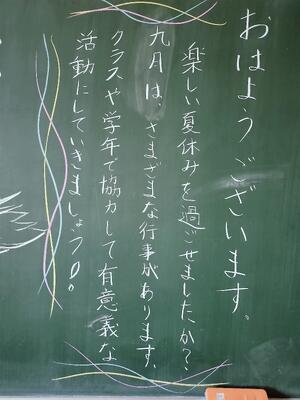 おはようございます。
楽しい夏休みを過ごせましたか？
九月は、さまざまな行事があります、
クラスや学年で協力して有意義な
活動にしていきましょう！